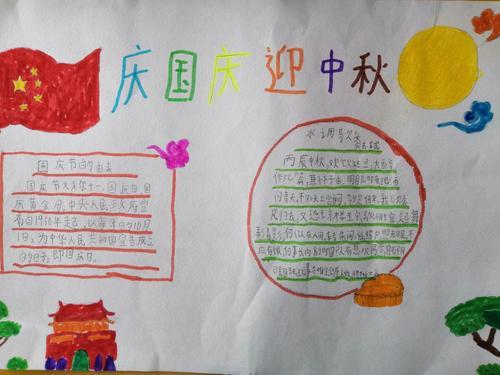 庆国庆迎中秋
国庆节的由来
国庆节又称十一、国庆日国
庆黄金周,中央人民政府宣
布自1950年起,以每年的10月
1日,为中华人民共和国宣告成立
的日子,即国庆日。
水调歌头
苏轼
丙辰中秋,欢饮达旦,大醉
作此篇,兼怀子由。明月几时有把酒
问青天。不知天上宫阙,今夕是何年。我欲乘
风归去,又恐琼楼玉宇,高处不胜寒 起舞
弄清影何似在人间。转朱阁,低绮户,照无眠。不
应有恨,何事长向别时圆人有悲欢离合,月有阴